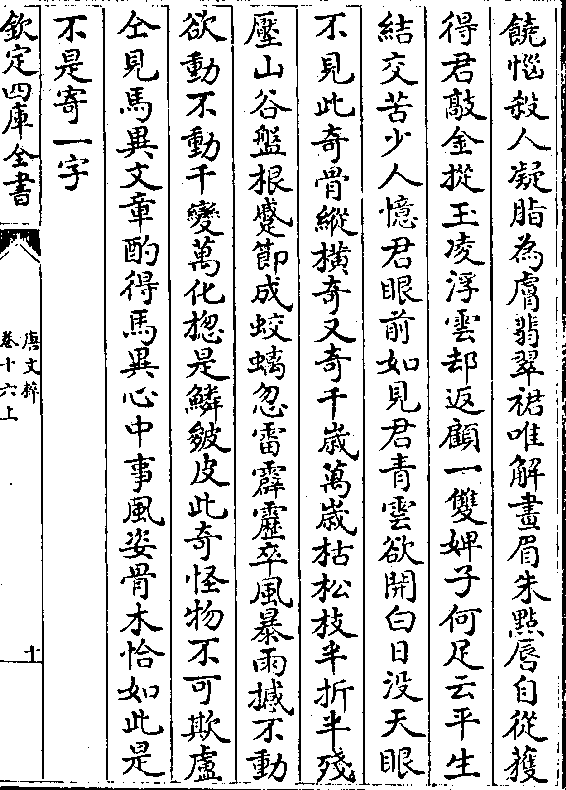 饒惱殺人凝脂為膚翡翠裙唯解畫眉朱點脣自從獲
得君敲金摐玉凌浮雲却返顧一雙婢子何足云平生
結交苦少人憶君眼前如見君青雲欲開白日没天眼
不見此奇骨此骨縱横奇又奇千歳萬歳枯松枝半折半殘
壓山谷盤根蹙節成蛟螭忽雷霹靂卒風暴雨撼不動
欲動不動千變萬化揔是鱗皴皮此奇怪物不可欺盧
仝見馬異文章酌得馬異心中事風姿骨木恰如此是
不是寄一字
欽定四庫全書
唐文粹
卷十六上
十